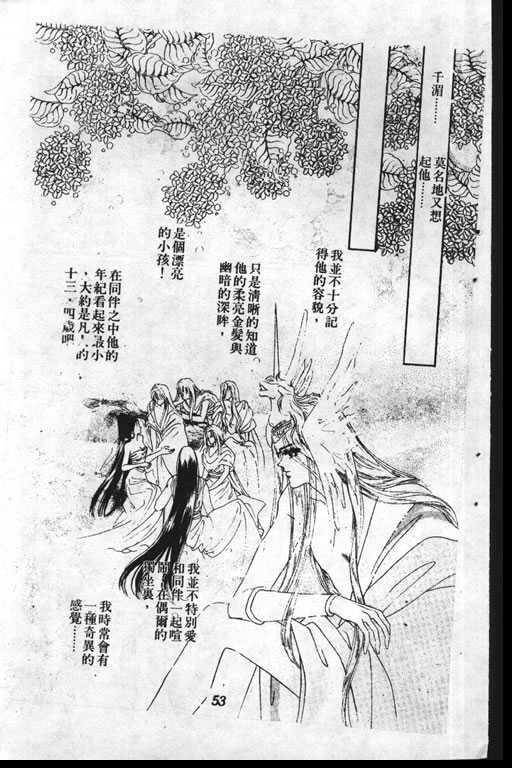 千湄………
莫名地又想
起他………
我並不十分記
得他的容貌，
只是清晰的知道
他的柔亮金髮與
幽暗的深眸，
是個漂亮
的小孩！
在同伴之中他的
年紀看起來最小
，大約是凡人的
十三，四歲吧
我並不特別愛
和同伴一起喧
鬧，在偶爾的
獨坐裏，
我時常會有
一種奇異的
感覺………
53